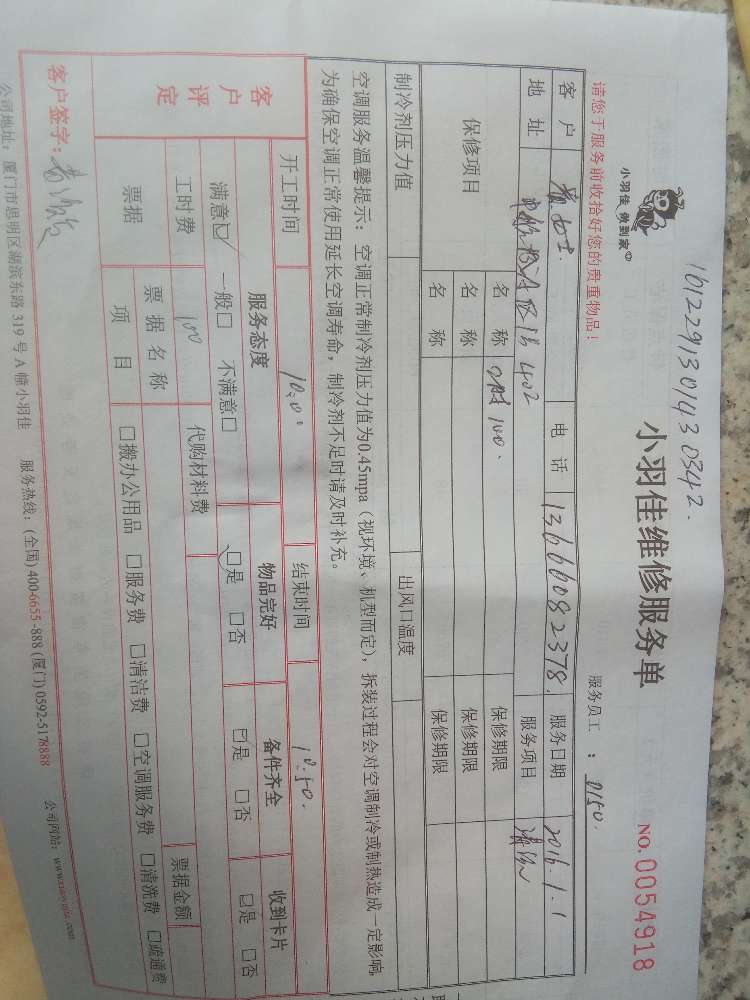 1612291301430342.
小羽佳 做到家
小羽佳维修服务单
NO. 0054918
请您于服务前收拾好您的贵重物品！
服务员工 ： 0150.
客户 女士 电话 13666082378. 服务日期 2016.1.1
地址 402 服务项目 清洗
保修项目 名称 100. 保修期限
名称 保修期限
名称 保修期限
制冷剂压力值 出风口温度
空调服务温馨提示： 空调正常制冷剂压力值为0.45mpa（视环境、机型而定），拆装过程会对空调制冷或制热造成一定影响，
为确保空调正常使用延长空调寿命，制冷剂不足时请及时补充。
开工时间 10:00 结束时间 10:50.
客户评定
服务态度 物品完好 备件齐全 收到卡片
满意☑ 一般□ 不满意□ ☑是 □否 ☑是 □否 ☑是 □否
工时费 100 代购材料费 票据金额
票据 票据名称
项目 □搬办公用品 □服务费 □清洁费 □空调服务费 □清洗费 □疏通费
客户签字：
公司地址：厦门市思明区湖滨东路 319 号 A 幢小羽佳 服务热线：(全国) 400-6655-888 (厦门) 0592-5178888 公司网站：www.xiaoyujia.com